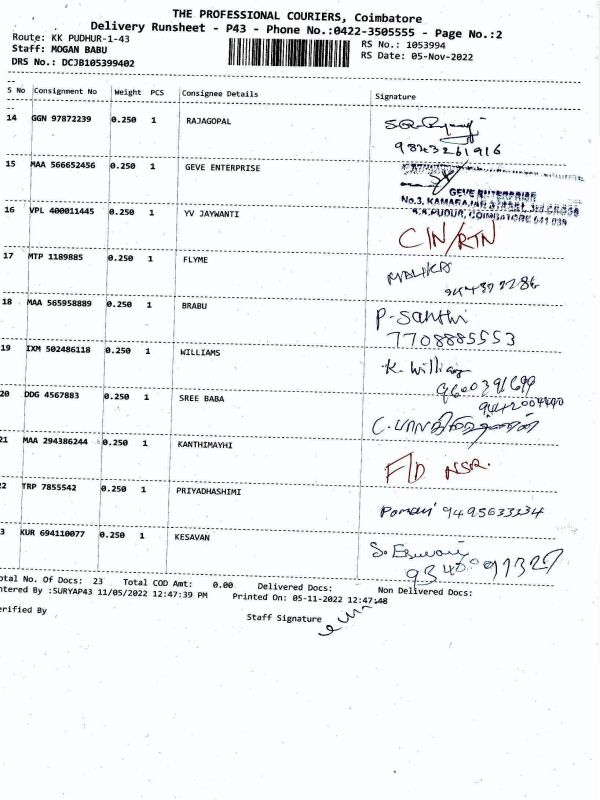 THE PROFESSIONAL COURIERS, Coimbatore
Delivery Runsheet - P43 - Phone No.:0422-3505555 - Page No.:2
Route: KK PUDHUR-1-43 RS No.: 1053994
Staff: MOGAN BABU RS Date: 05-Nov-2022
DRS No.: DCJB105399402
S No Consignment No Weight PCS Consignee Details Signature
14 GGN 97872239 0.250 1 RAJAGOPAL
9843261916
15 MAA 566652456 0.250 1 GEVE ENTERPRISE
GEVE ENTERPRISE
No.3, KAMARAJAR STREET, 3rd CROSS
K.K.PUDUR, COIMBATORE 641 038
16 VPL 400011445 0.250 1 YV JAYWANTI
CIN/RTN
17 MTP 1189885 0.250 1 FLYME
18 MAA 565958889 0.250 1 BRABU P-Santhi
7708885553
19 IXM 502486118 0.250 1 WILLIAMS K. William
9600391699
20 DDG 4567883 0.250 1 SREE BABA
21 MAA 294386244 0.250 1 KANTHIMAYHI
F/D NSR.
22 TRP 7855542 0.250 1 PRIYADHASHIMI
9495633334
3 KUR 694110077 0.250 1 KESAVAN
otal No. Of Docs: 23 Total COD Amt: 0.00 Delivered Docs: Non Delivered Docs:
ntered By :SURYAP43 11/05/2022 12:47:39 PM Printed On: 05-11-2022 12:47:48
erified By Staff Signature